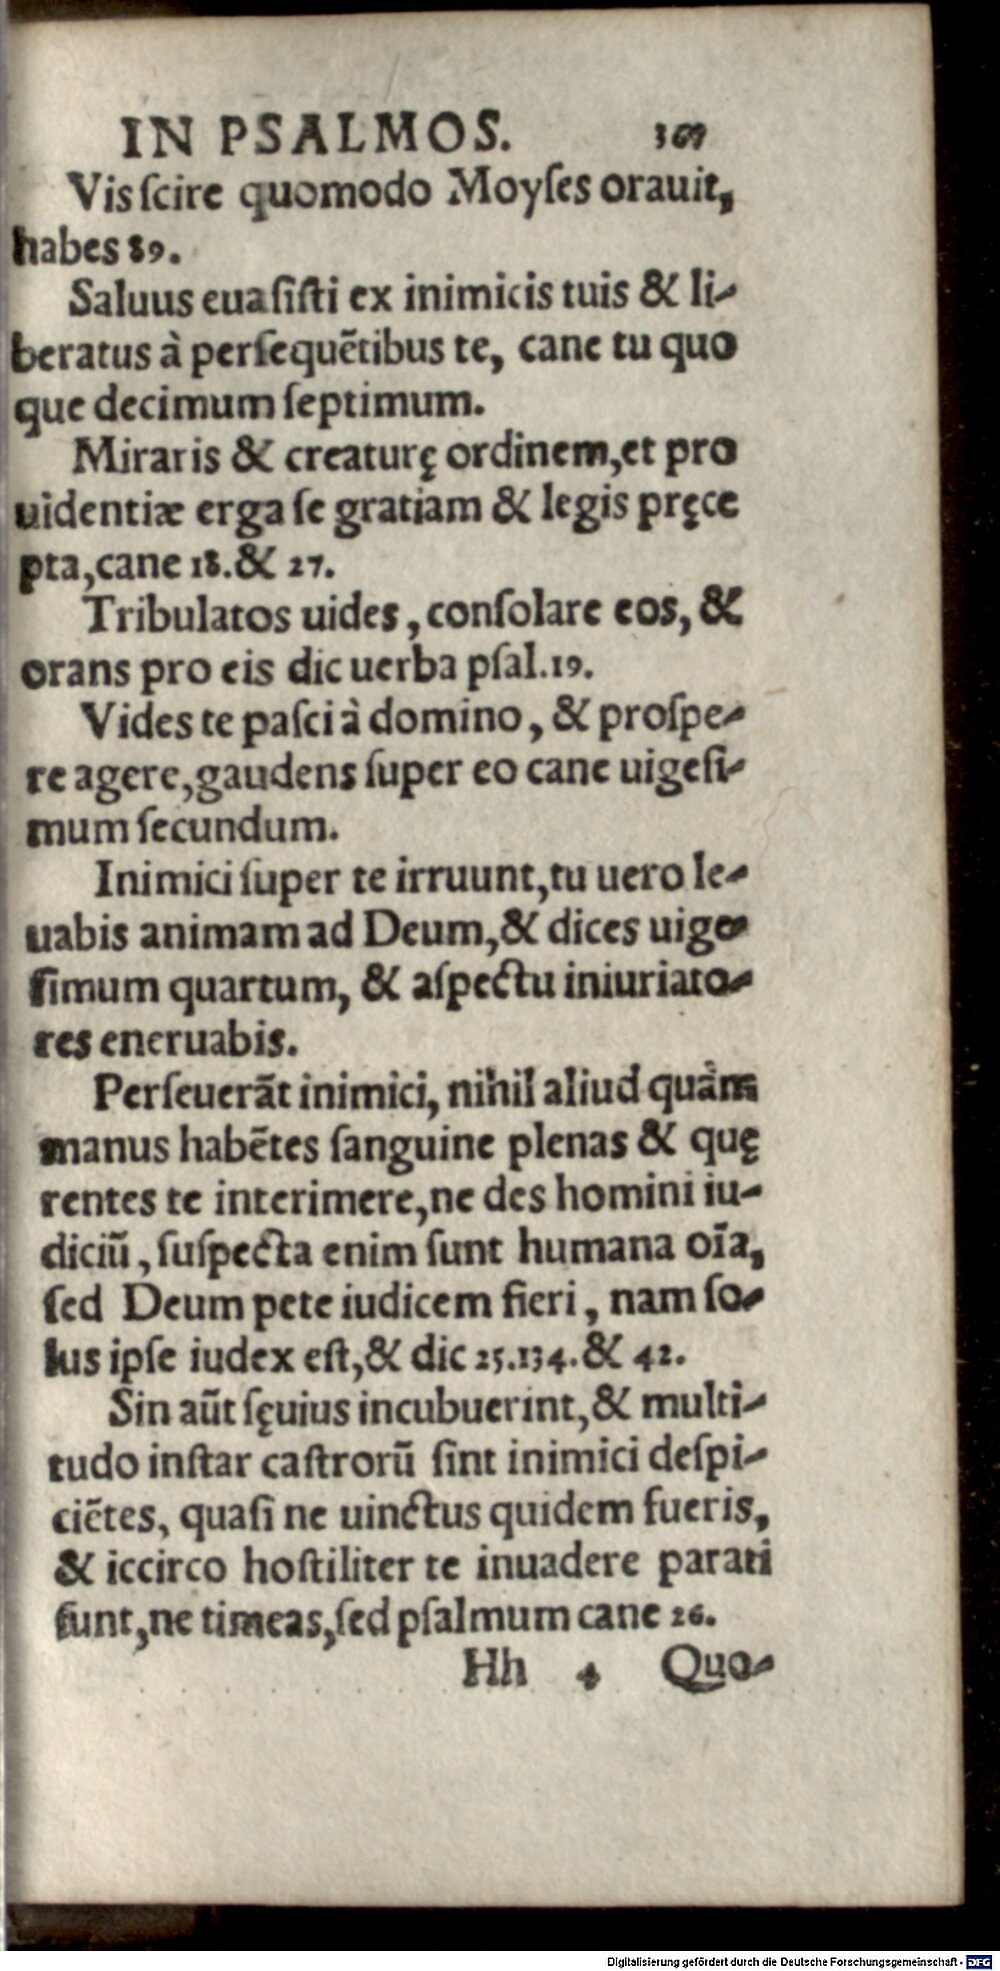 IN PSALMOS. 369
Vis ſcire quomodo Moyſes orauit,
habes 89.
Saluus euaſiſti ex inimicis tuis & li-
beratus à perſequētibus te, cane tu quo
que decimum ſeptimum.
Miraris & creaturę ordinem, et pro
uidentiæ erga ſe gratiam & legis pręce
pta, cane 18. & 27.
Tribulatos uides, conſolare eos, &
orans pro eis dic uerba pſal. 19.
Vides te paſci à domino, & proſpe-
re agere, gaudens ſuper eo cane uigeſi-
mum ſecundum.
Inimici ſuper te irruunt, tu uero le-
uabis animam ad Deum, & dices uige-
ſimum quartum, & aſpectu iniuriato-
res eneruabis.
Perſeuerāt inimici, nihil aliud quàm
manus habētes ſanguine plenas & quę
rentes te interimere, ne des homini iu-
diciū, ſuſpecta enim ſunt humana oīa,
ſed Deum pete iudicem fieri, nam ſo-
lus ipſe iudex eſt, & dic 25. 134. & 42.
Sin aūt ſęuius incubuerint, & multi-
tudo inſtar caſtrorū ſint inimici deſpi-
ciētes, quaſi ne uinctus quidem fueris,
& iccirco hoſtiliter te inuadere parati
ſunt, ne timeas, ſed pſalmum cane 26.
Hh 4 Quo-
Digitalisierung gefördert durch die Deutsche Forschungsgemeinschaft - DFG